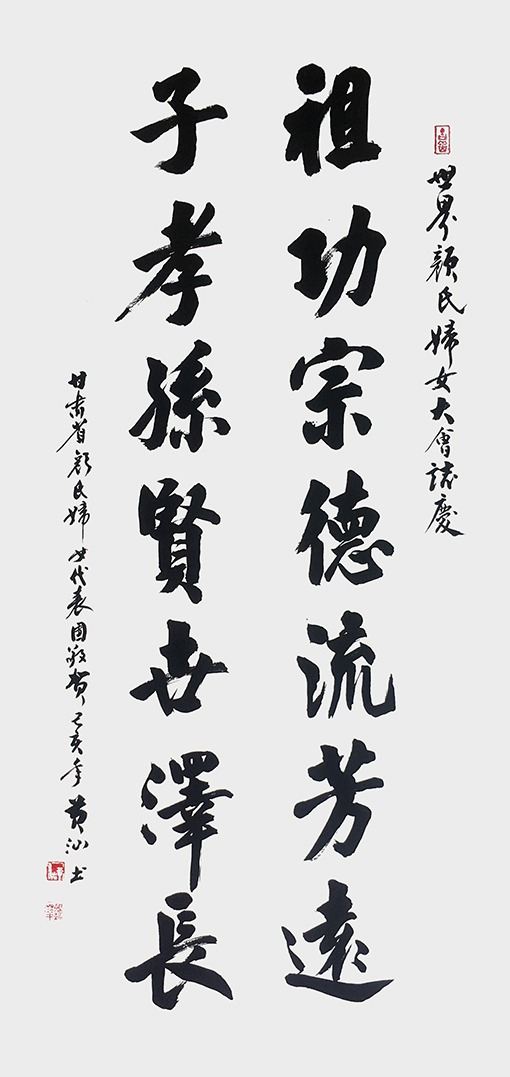 世界顏氏婦女大會誌慶
祖功宗德流芳遠
子孝孫賢世澤長
甘肅省顏氏婦女代表團敬賀己亥年黃汕书